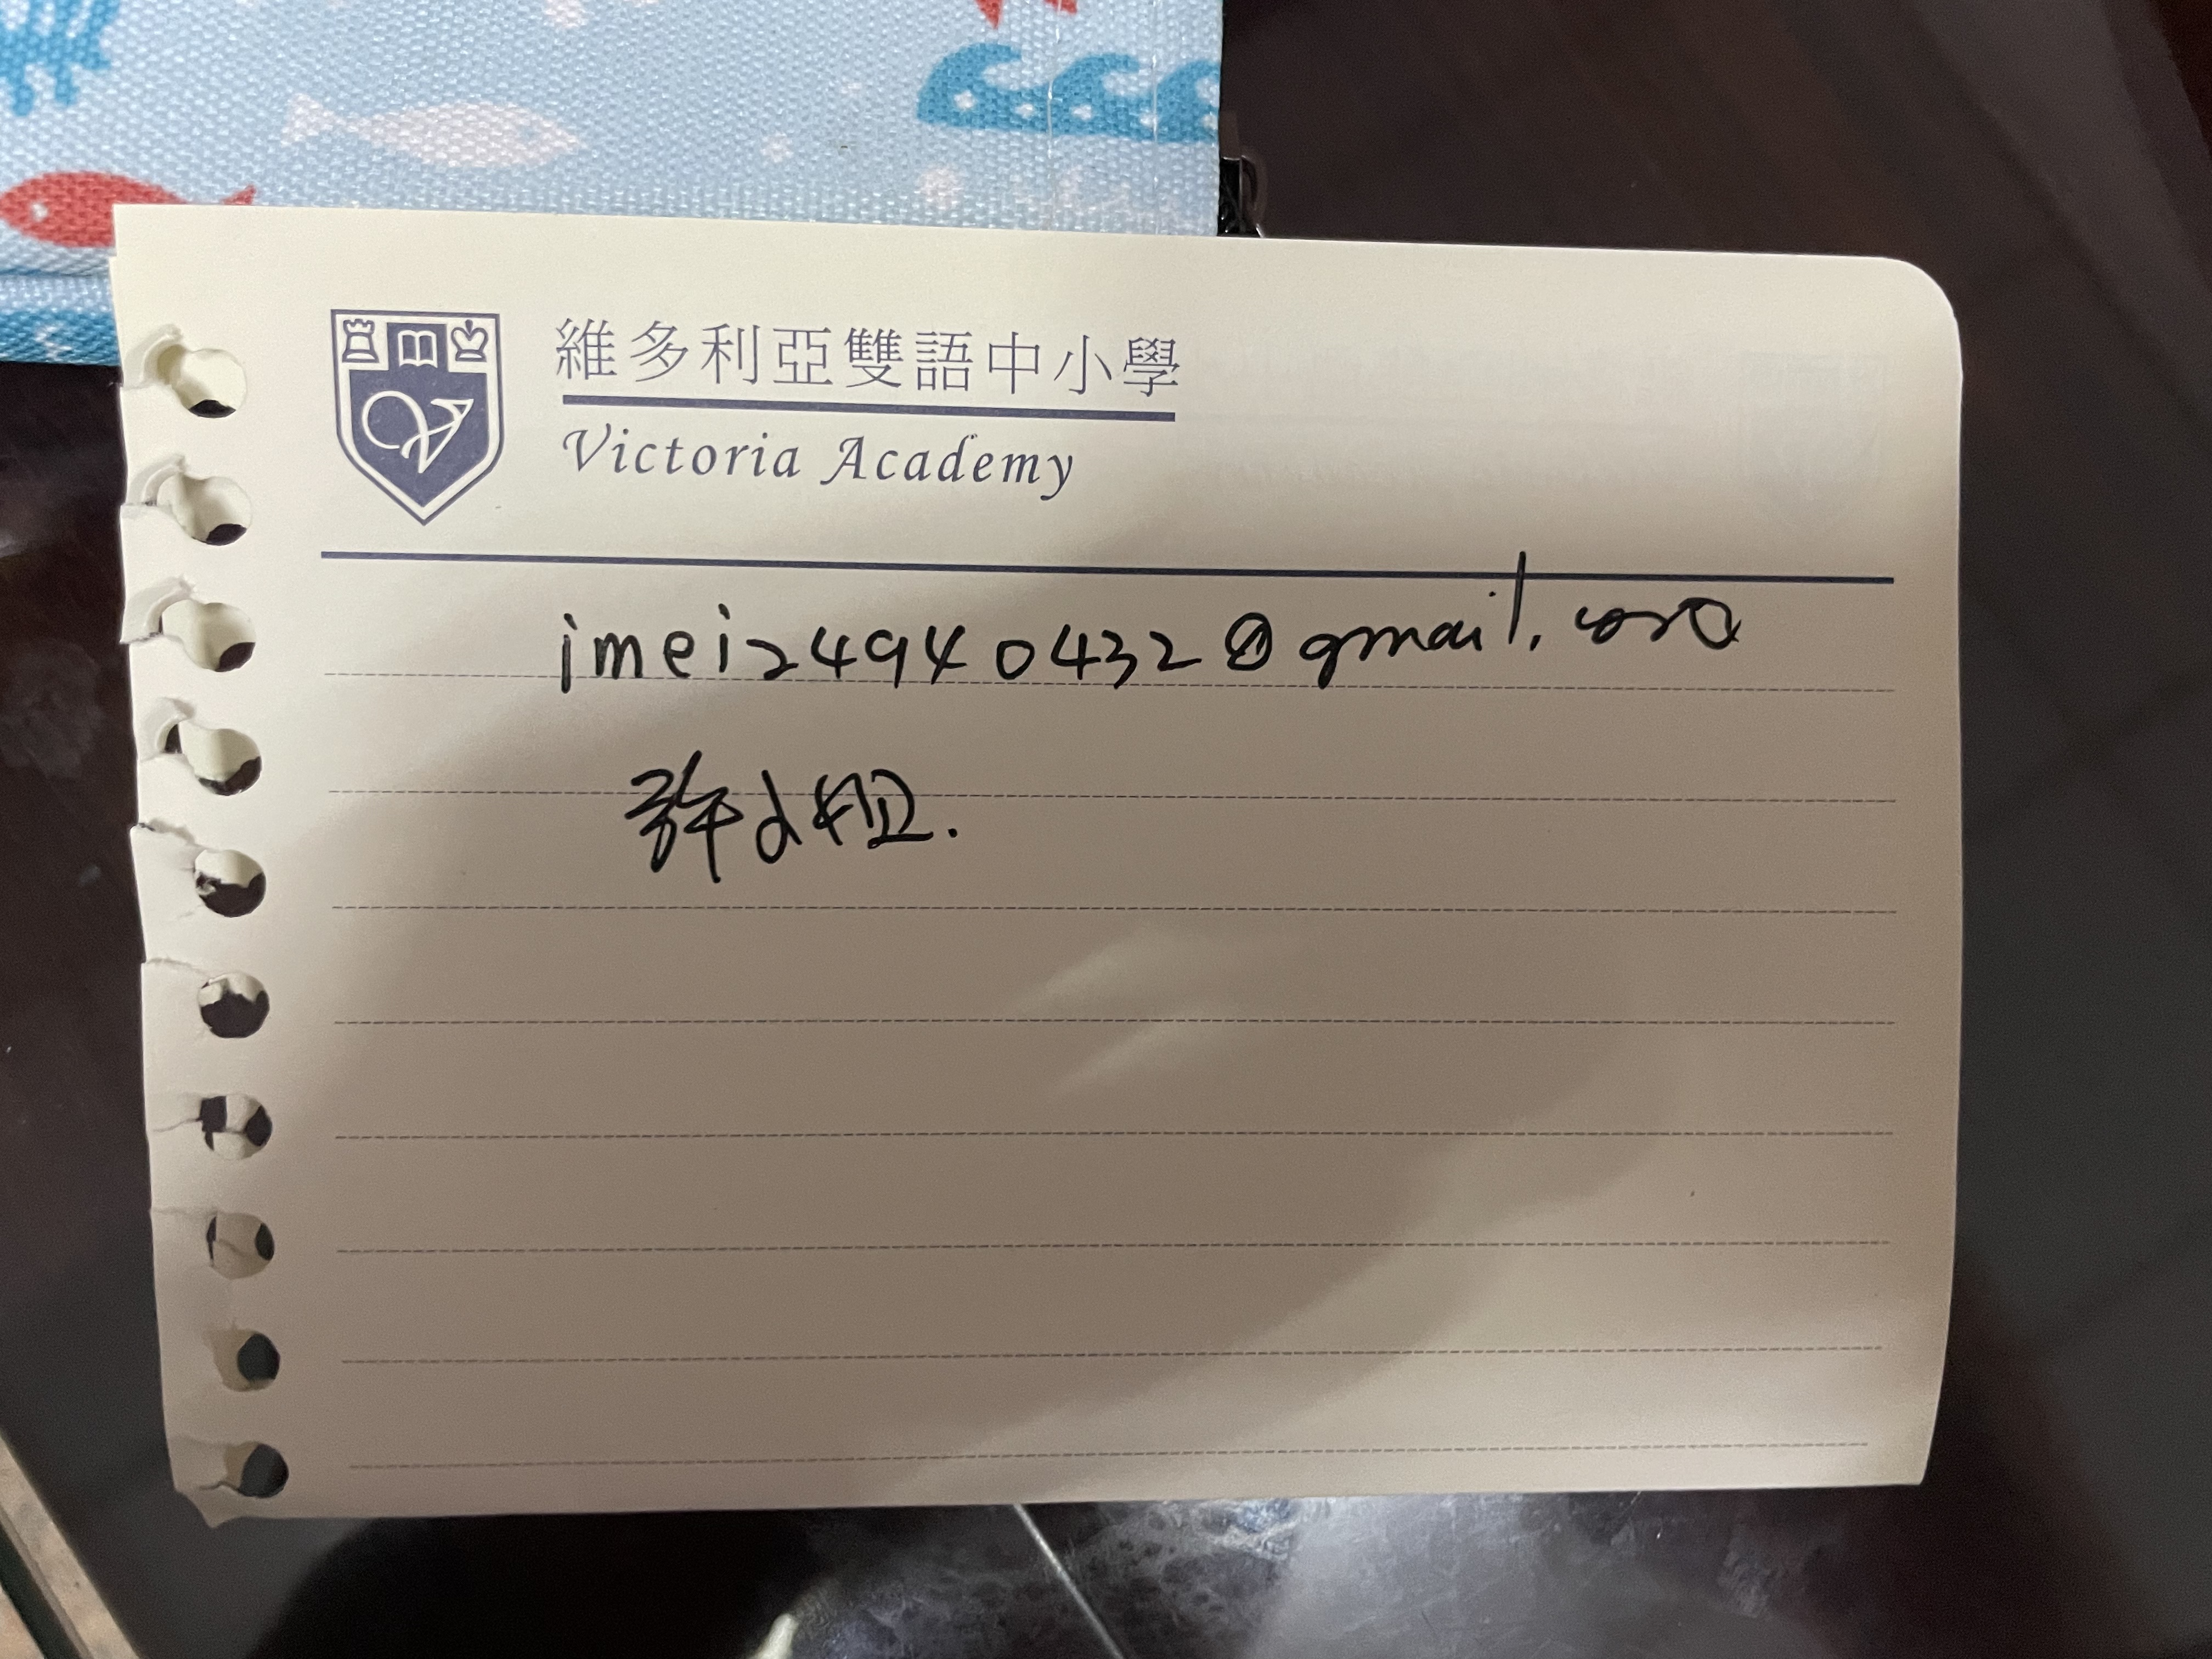 維多利亞雙語中小學
Victoria Academy
imei24940432@gmail.com
許小姐.